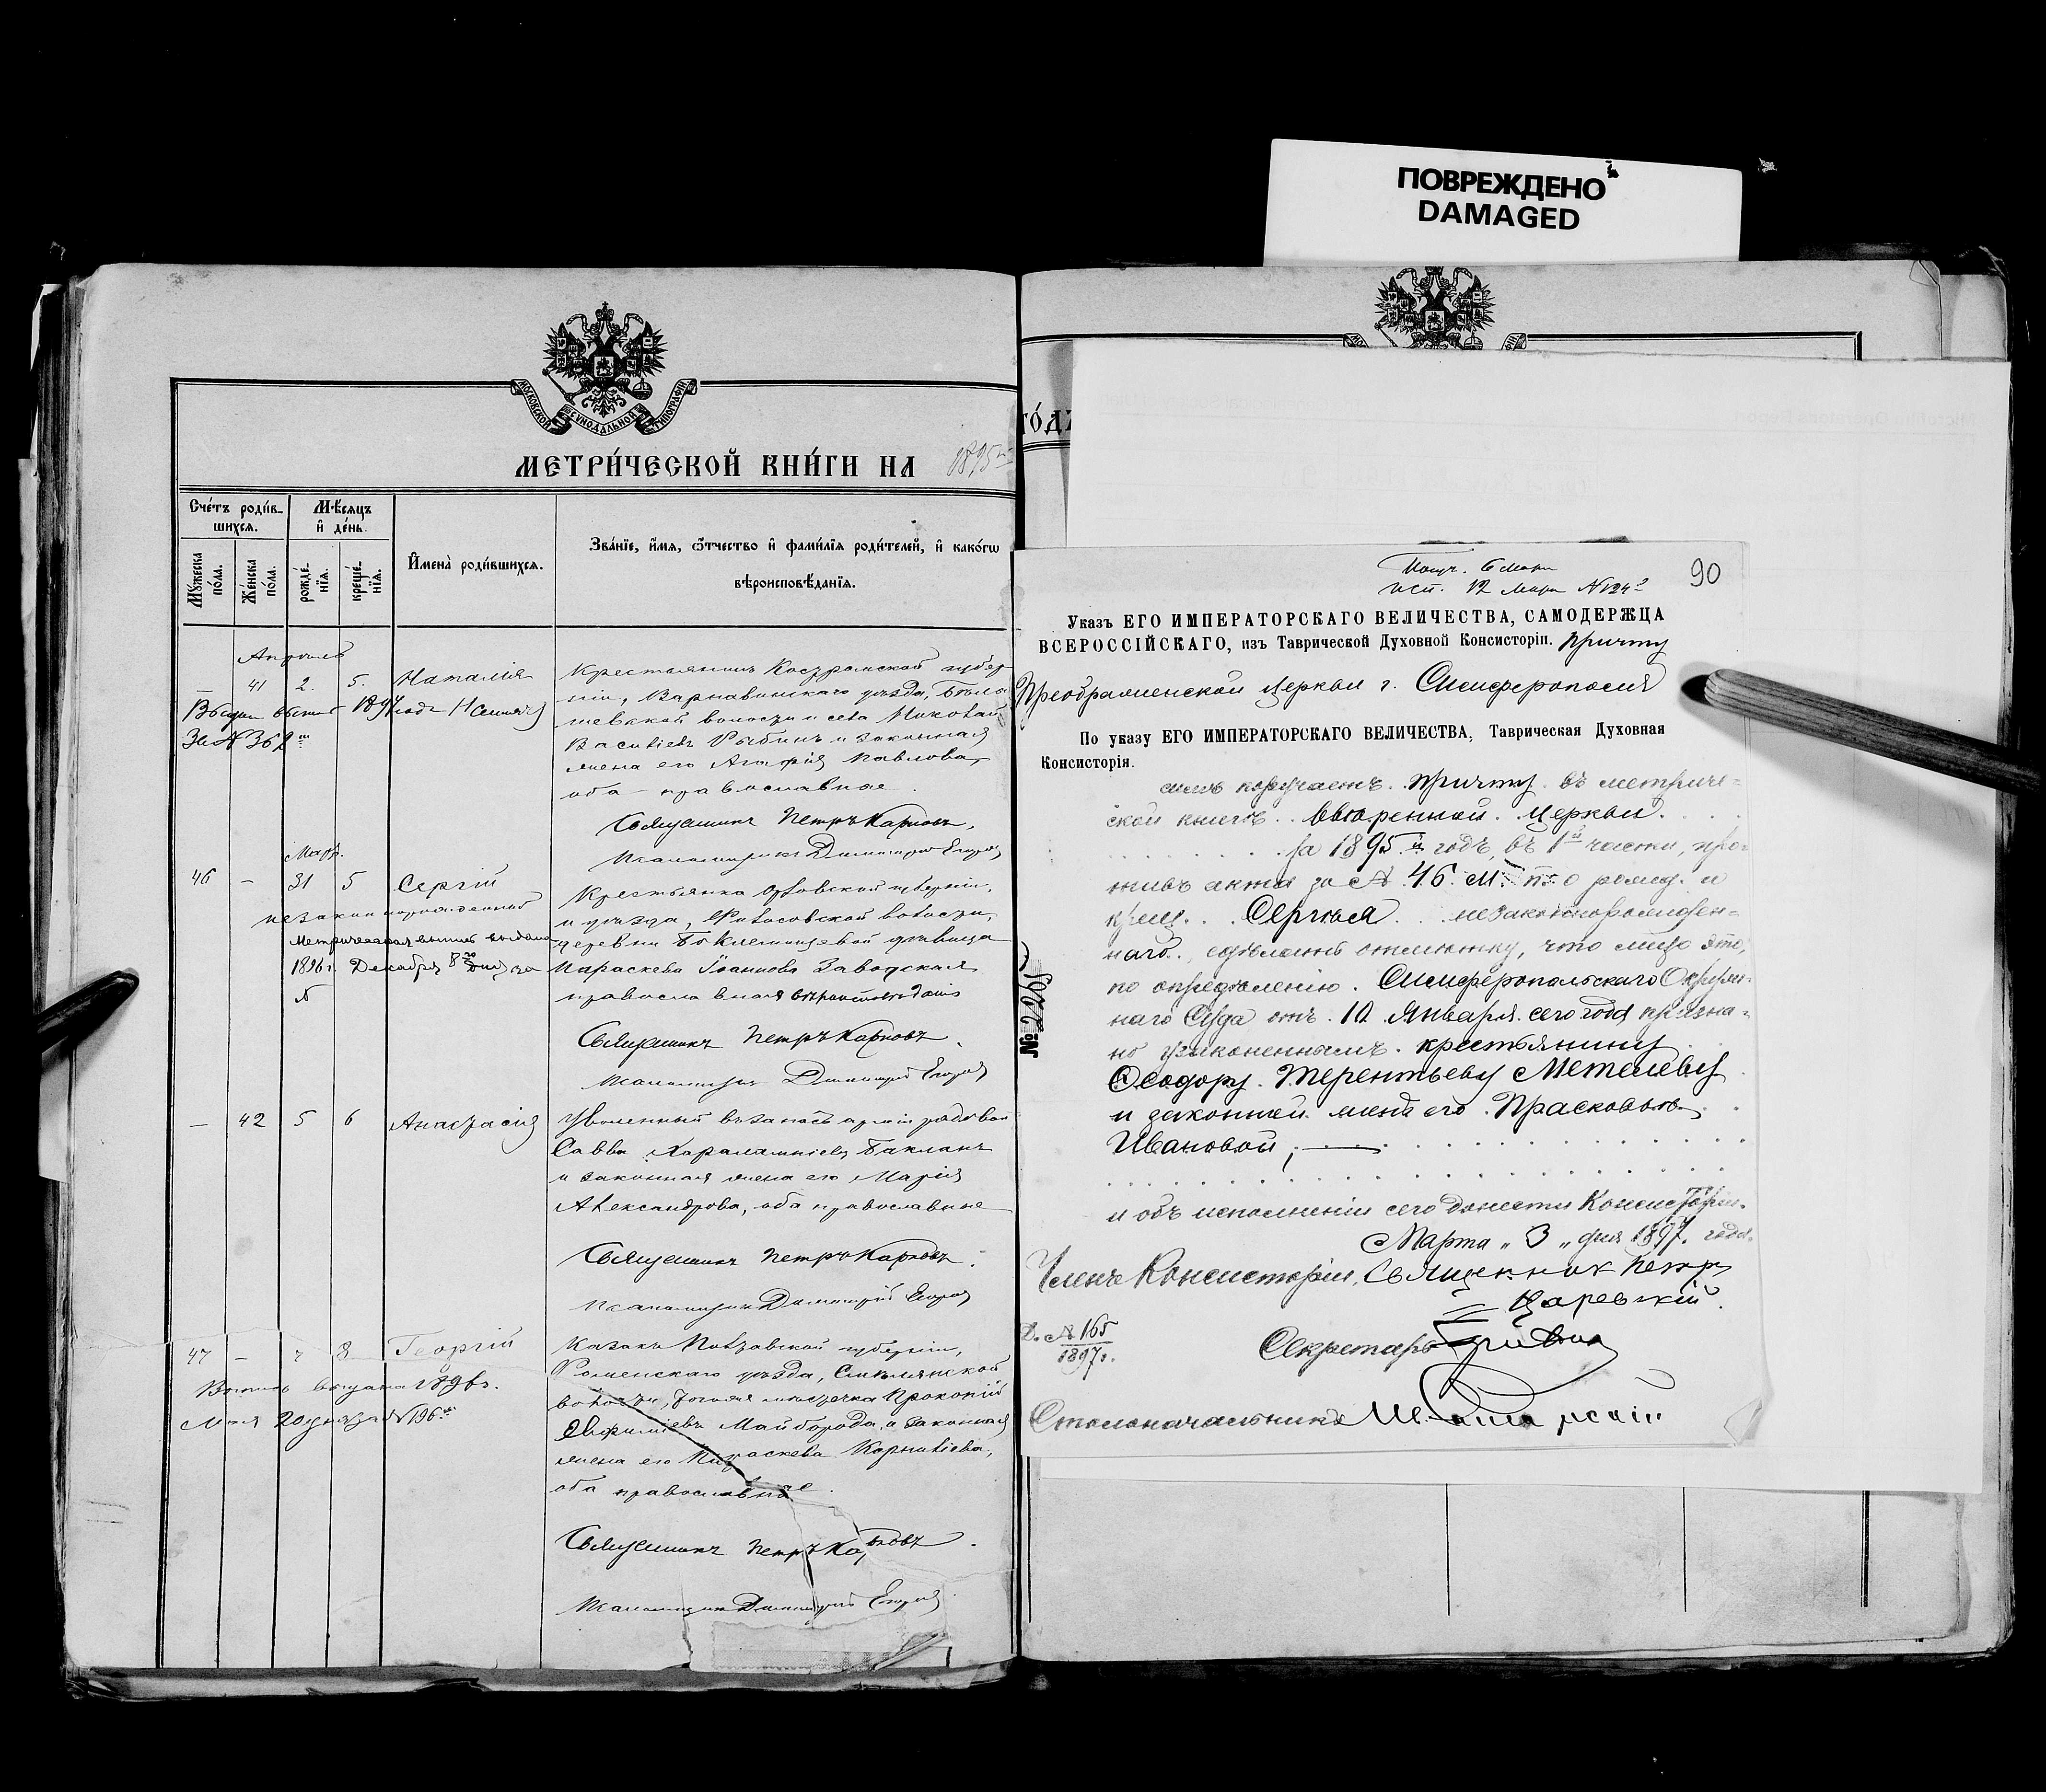 ПОВРЕЖДЕНО
DAMAGED
МОСКОВСКОЙ СѴНОДАЛЬНОЙ ТИПОГРАФІИ
МЕТРИ́ЧЕСКОЙ КНИ́ГИ НА 1895
Сче́тъ роди́вшихся.
Мѣ́сяцъ и҆ де́нь.
И҆мена̀ роди́вшихся.
Зва́нїе, и҆́мя, ѻ҆́тчество и҆ фами́лїя роди́телей, и҆ како́гѡ
вѣроисповѣ́данїя.
Мꙋ́жеска по́ла.
Же́нска по́ла.
рожде́нїя.
креще́нїя.
Апрѣль
— 41 2. 5. Наталія
Крестьянинъ Костромской губер
ніи, Варнавинскаго уѣзда,
волости и села Николай
Васильевъ Рыбинъ и законная
жена его Агафія Павлова,
оба православные.
За № 362
Священникъ Петръ Карповъ,
Псаломщикъ Димитрій
Март.
46 — 31 5 Сергій
незаконнорожденный
Метрическая выпись выдана
1896 г. Декабря 8 дня за
№
Крестьянка Орловской губерніи,
и уѣзда, волости,
деревни дѣвица
Параскева Іоаннова Заводская
православнаго вѣроисповѣданія
Священникъ Петръ Карповъ.
Псаломщикъ Димитрій
— 42 5 6 Анастасія
Уволенный въ запасъ арміи рядовой
Савва Харалампіевъ Бакланъ
и законная жена его Марія
Александрова, оба православные
Священникъ Петръ Карповъ.
Псаломщикъ Димитрій
47 — 7 8 Георгій
Выпись выдана 1896 г.
Мая 20 дня за № 196
Казакъ Полтавской губерніи,
Роменскаго уѣзда, Смѣлянской
волости, мѣстечка Прокопій
Евфиміевъ Майборода и законная
жена его Параскева Корниліева,
оба православные.
Священникъ Петръ Карповъ.
Псаломщикъ Димитрій
ГО́ДЪ
Получ. 6 Марта
исп. 12 Марта № 124
90
Указъ ЕГО ИМПЕРАТОРСКАГО ВЕЛИЧЕСТВА, САМОДЕРЖЦА
ВСЕРОССІЙСКАГО, изъ Таврической Духовной Консисторіи. Причту
Преображенской церкви г. Симферополя
По указу ЕГО ИМПЕРАТОРСКАГО ВЕЛИЧЕСТВА, Таврическая Духовная
Консисторія.
симъ поручаетъ. Причту. въ метриче=
ской книгѣ. ввѣренной. Церкви.
за 1895 й годъ, въ 1й части, про=
тивъ акта за № 46. М. п. о рожд. и
крещ. Сергѣя. незаконнорожден=
наго, сдѣлать отмѣтку, что лицо это,
по опредѣленію. Симферопольскаго Окруж=
наго Суда отъ. 10. Января. сего года призна=
но узаконеннымъ. крестьянину
Ѳеодору. Терентьеву Метелеву
и законной женѣ его. Прасковьѣ
Ивановой, —
и объ исполненіи сего донести Консисторіи.
Марта „ 3 „ дня 1897. года.
Членъ Консисторіи, Священникъ Петръ
Царевскій.
№ 2265
Д. № 165
1897 г.
Секретарь
Столоначальникъ